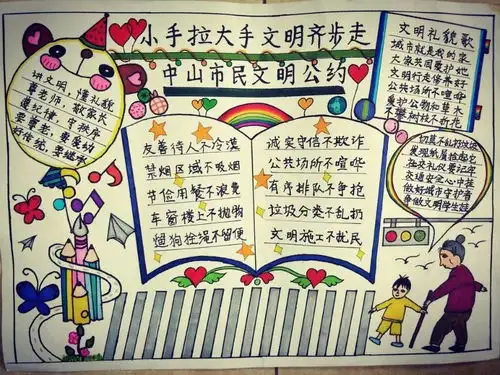 小手拉大手文明齐步走
中山市民文明公约
讲文明,懂礼貌
尊老师,敬家长
遵纪律,守秩序
要尊老,要爱幼
好传统,要继承
友善待人不冷漠
禁烟区域不吸烟
节俭用餐不浪费
车窗楼上不抛物
遛狗拴绳不留便
诚实守信不欺诈
公共场所不喧哗
有序排队不争抢
垃圾分类不乱扔
文明施工不扰民
文明礼貌歌
城市就是我的家
大家共同爱护她
文明行走修养好
公共场所不喧哗
爱护公物和草木
不攀树枝不折花
发现纸屑捡起它
社交礼仪要记牢
交通安全心中挂
做好城市守护者
争做文明学生娃